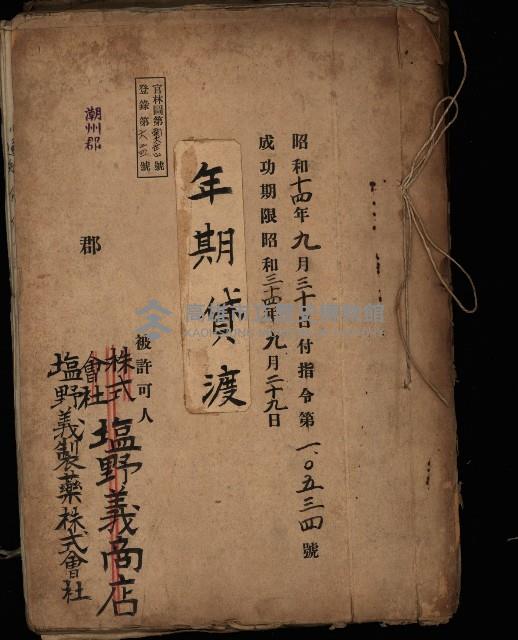 昭和十四年九月三十日付指令第一、〇五三四號
成功期限昭和三十四年九月二十九日
年期貸渡
官林圖第號
登錄第號
潮州郡
郡
被許可人
株式會社塩野義商店
塩野義製藥株式會社
高雄市立歷史博物館